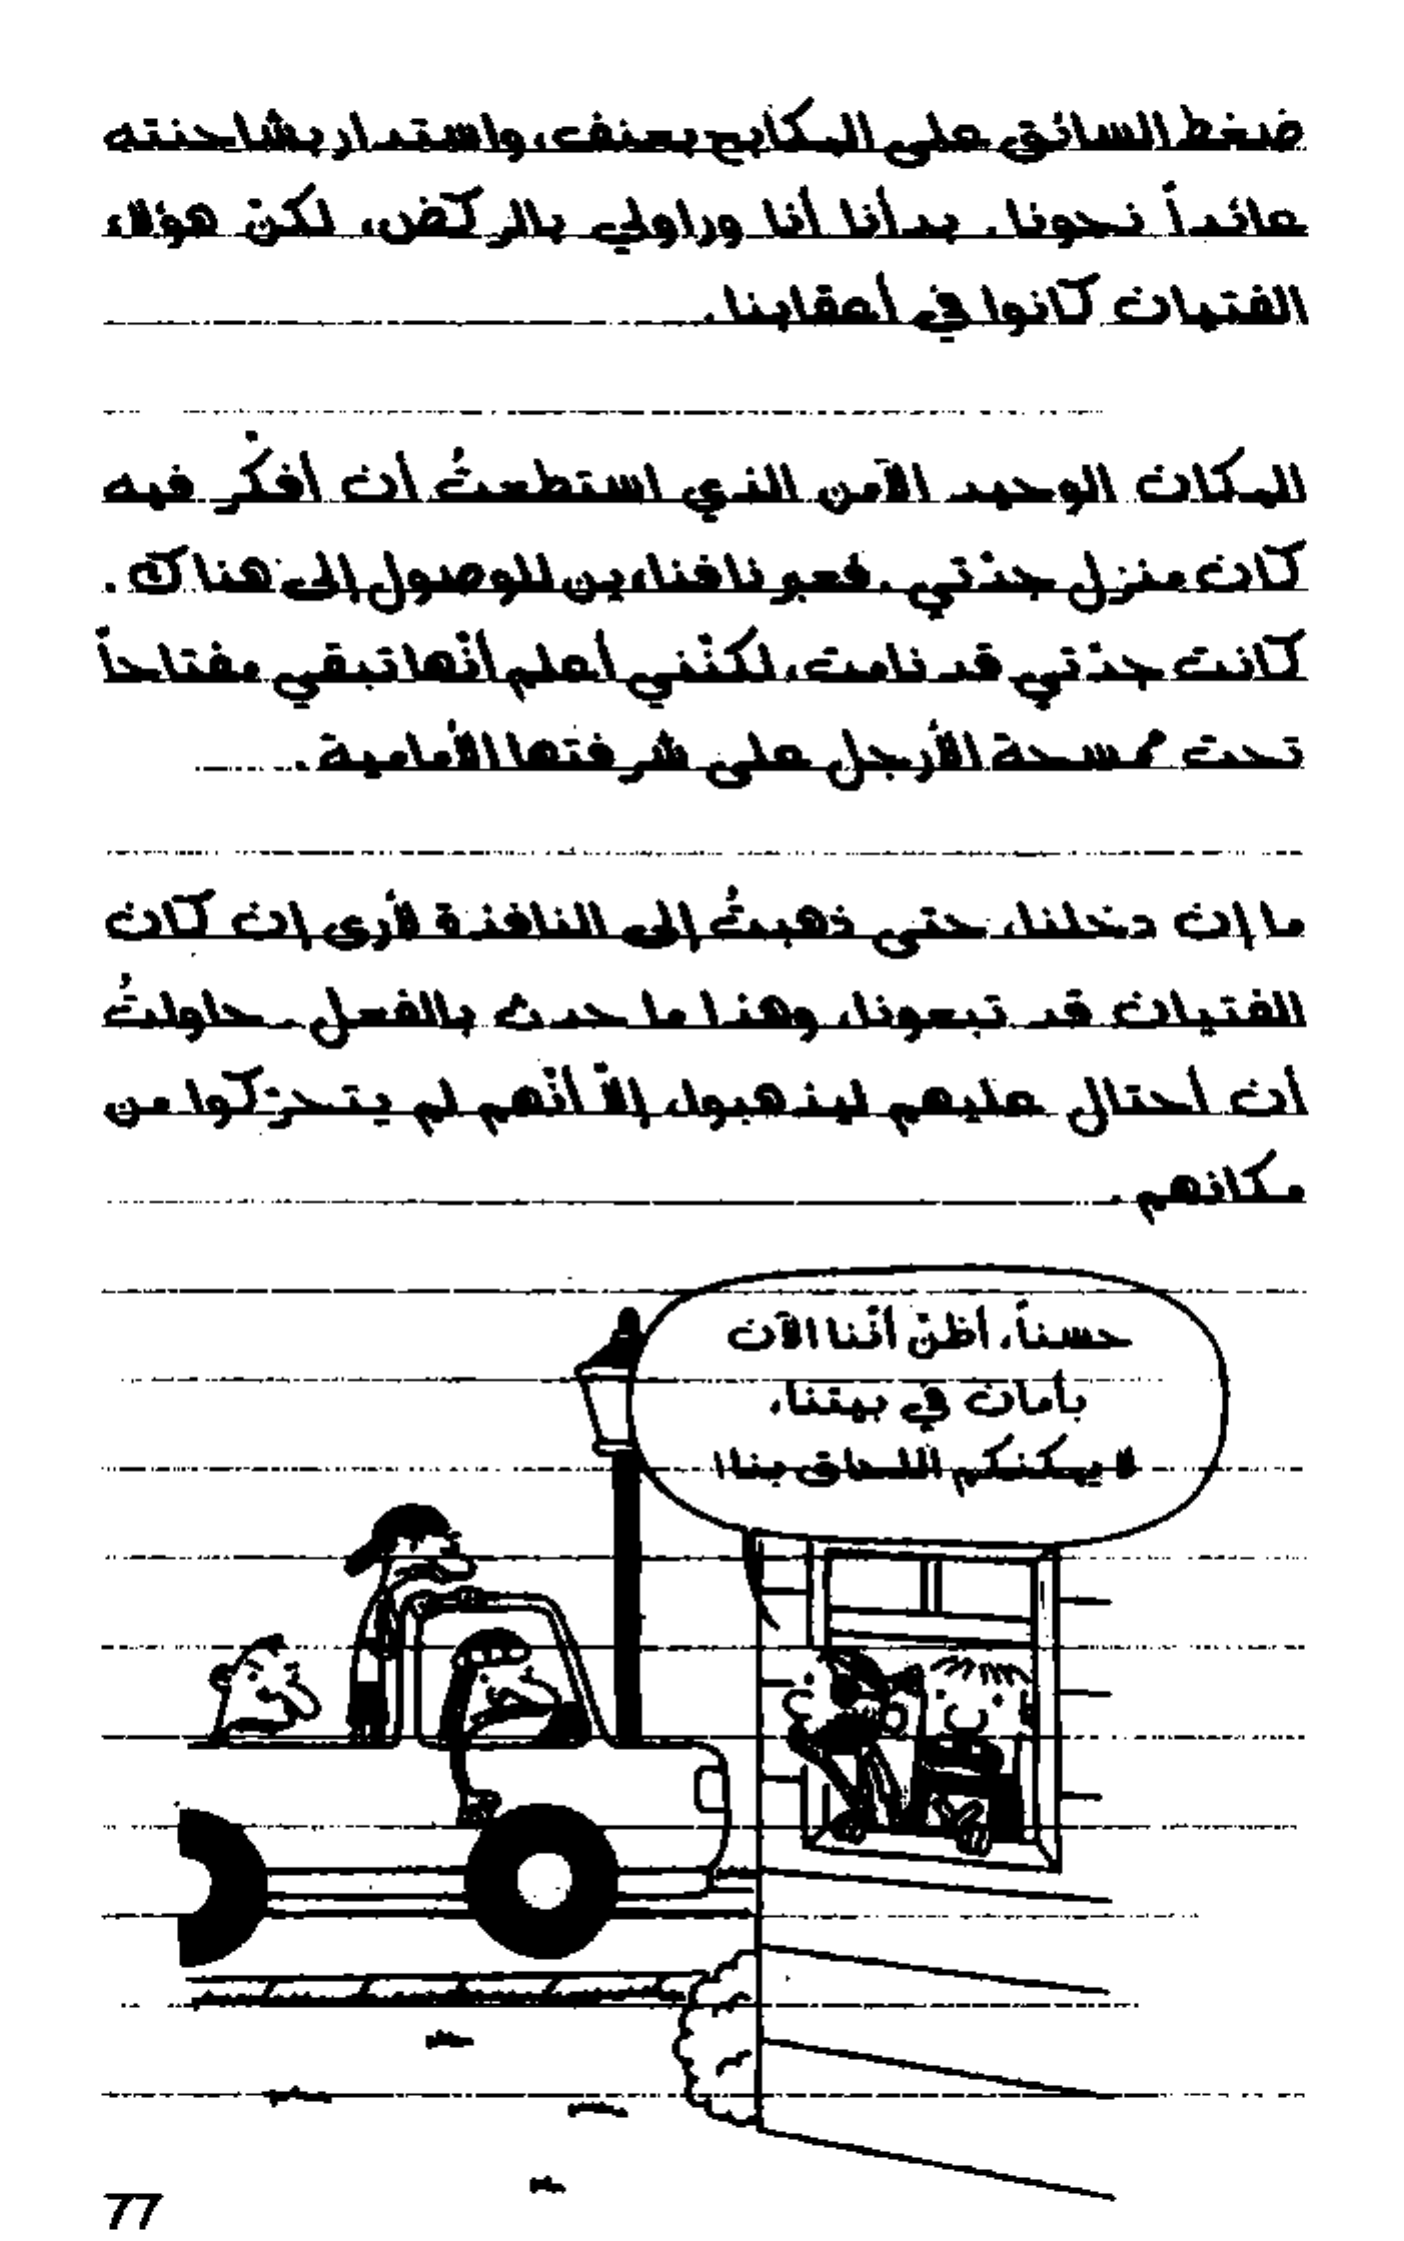 ضغط السائق على المكابح بعنف، واستدار بشاحنته
عائداً نحونا. بدأنا أنا وراولي بالركض، لكنّ هؤلاء
الفتيان كانوا في أعقابنا.
المكان الوحيد الآمن الذي استطعتُ أن أفكّر فيه
كان منزل جدّتي. فعبرنا فناءين للوصول إلى هناك.
كانت جدّتي قد نامت، لكنّني أعلم أنّها تبقي مفتاحاً
تحت ممسحة الأرجل على شرفتها الأمامية.
ما إن دخلنا، حتى ذهبتُ إلى النافذة لأرى إن كان
الفتيان قد تبعونا، وهذا ما حدث بالفعل. حاولتُ
أن أحتال عليهم ليذهبوا، إلاّ أنّهم لم يتحرّكوا من
مكانهم.
حسناً، أظنّ أنّنا الآن
بأمان في بيتنا،
لا يمكنكم اللحاق بنا!
77